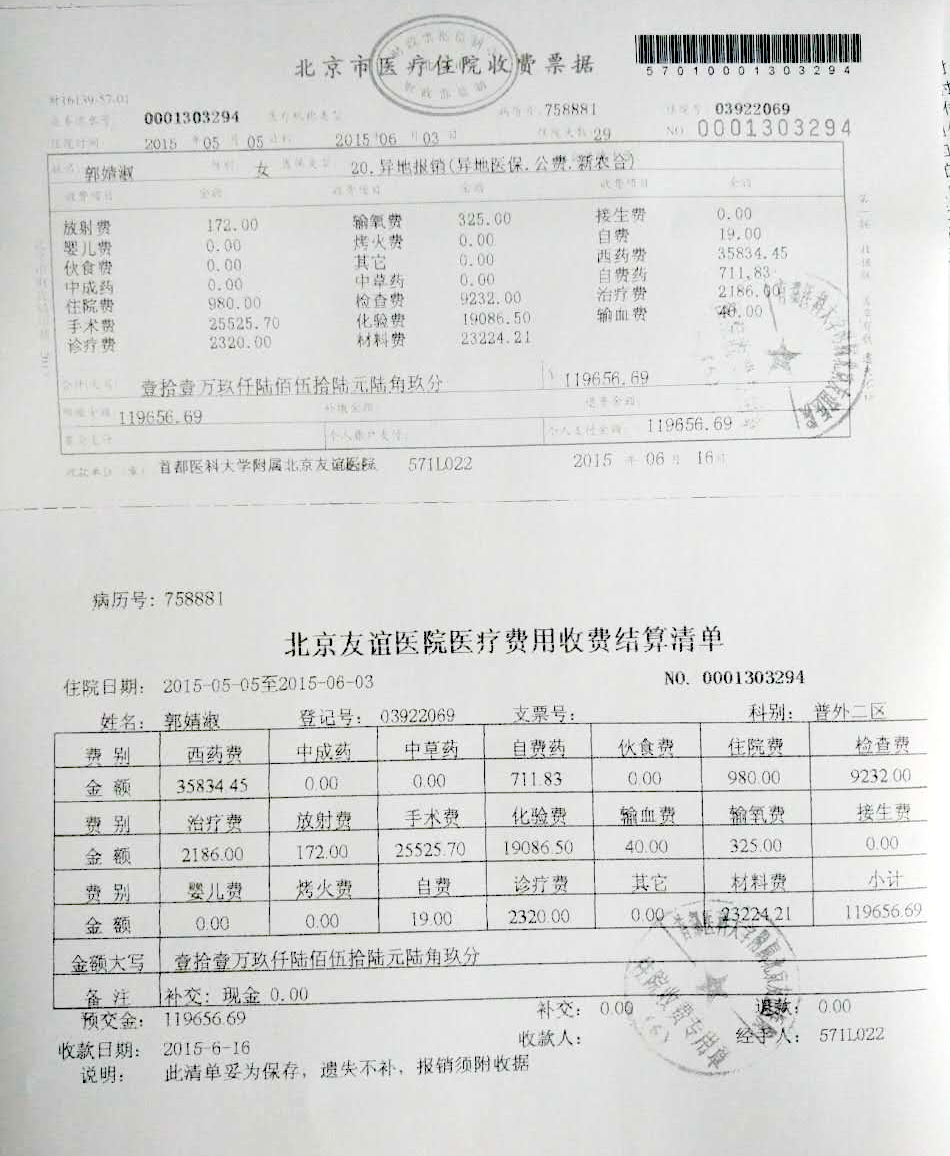 北京市医疗住院收费票据
57010001303294
财16139-57-01
0001303294 病历号:758881 住院号 03922069
住院时间 2015 年 05 月 05 日 2015 06 月 03 日 住院天数 29 NO 0001303294
姓名: 郭婧淑 性别 女 20.异地报销(异地医保.公费.新农合)
收费项目 金额 收费项目 金额 收费项目 金额
放射费 172.00 输氧费 325.00 接生费 0.00
婴儿费 0.00 烤火费 0.00 自费 19.00
伙食费 0.00 其它 0.00 西药费 35834.45
中成药 0.00 中草药 0.00 自费药 711.83
住院费 980.00 检查费 9232.00 治疗费 2186.00
手术费 25525.70 化验费 19086.50 输血费 40.00
诊疗费 2320.00 材料费 23224.21
合计(大写) 壹拾壹万玖仟陆佰伍拾陆元陆角玖分 119656.69
预缴金额 119656.69 补缴金额 退费金额
个人账户支付 个人支付金额 119656.69
收款单位(章) 首都医科大学附属北京友谊医院 571L022 2015 年 06 月 16 日
病历号: 758881
北京友谊医院医疗费用收费结算清单
住院日期: 2015-05-05至2015-06-03 NO. 0001303294
姓名: 郭婧淑 登记号: 03922069 支票号: 科别: 普外二区
费别 西药费 中成药 中草药 自费药 伙食费 住院费 检查费
金额 35834.45 0.00 0.00 711.83 0.00 980.00 9232.00
费别 治疗费 放射费 手术费 化验费 输血费 输氧费 接生费
金额 2186.00 172.00 25525.70 19086.50 40.00 325.00 0.00
费别 婴儿费 烤火费 自费 诊疗费 其它 材料费 小计
金额 0.00 0.00 19.00 2320.00 0.00 23224.21 119656.69
金额大写 壹拾壹万玖仟陆佰伍拾陆元陆角玖分
备注 补交: 现金 0.00
预交金: 119656.69 补交: 0.00 退款: 0.00
收款日期: 2015-6-16 收款人: 经手人: 571L022
说明: 此清单妥为保存, 遗失不补, 报销须附收据
住院收费专用章